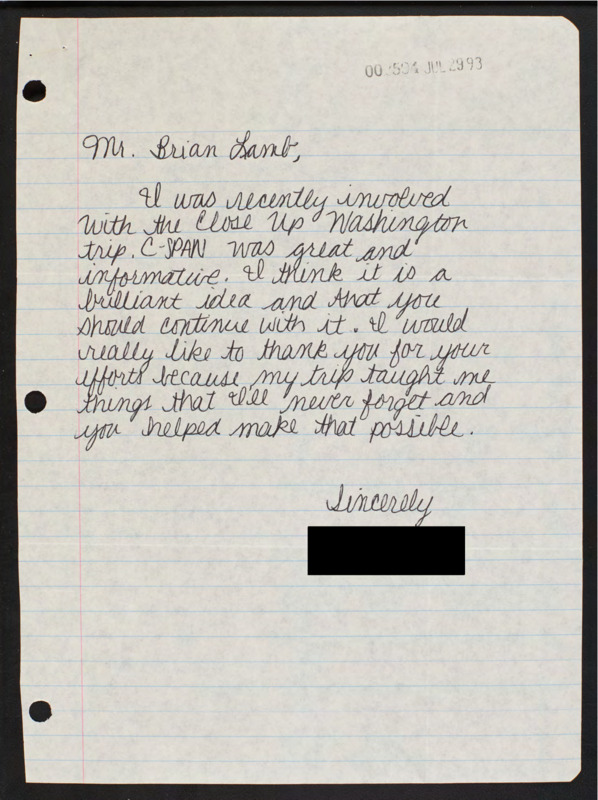 002594 JUL 29 93
Mr. Brian Lamb,
I was recently involved
with the Close Up Washington
trip. C-SPAN was great and
informative. I think it is a
brilliant idea and that you
should continue with it. I would
really like to thank you for your
efforts because my trip taught me
things that I'll never forget and
you helped make that possible.
Sincerely